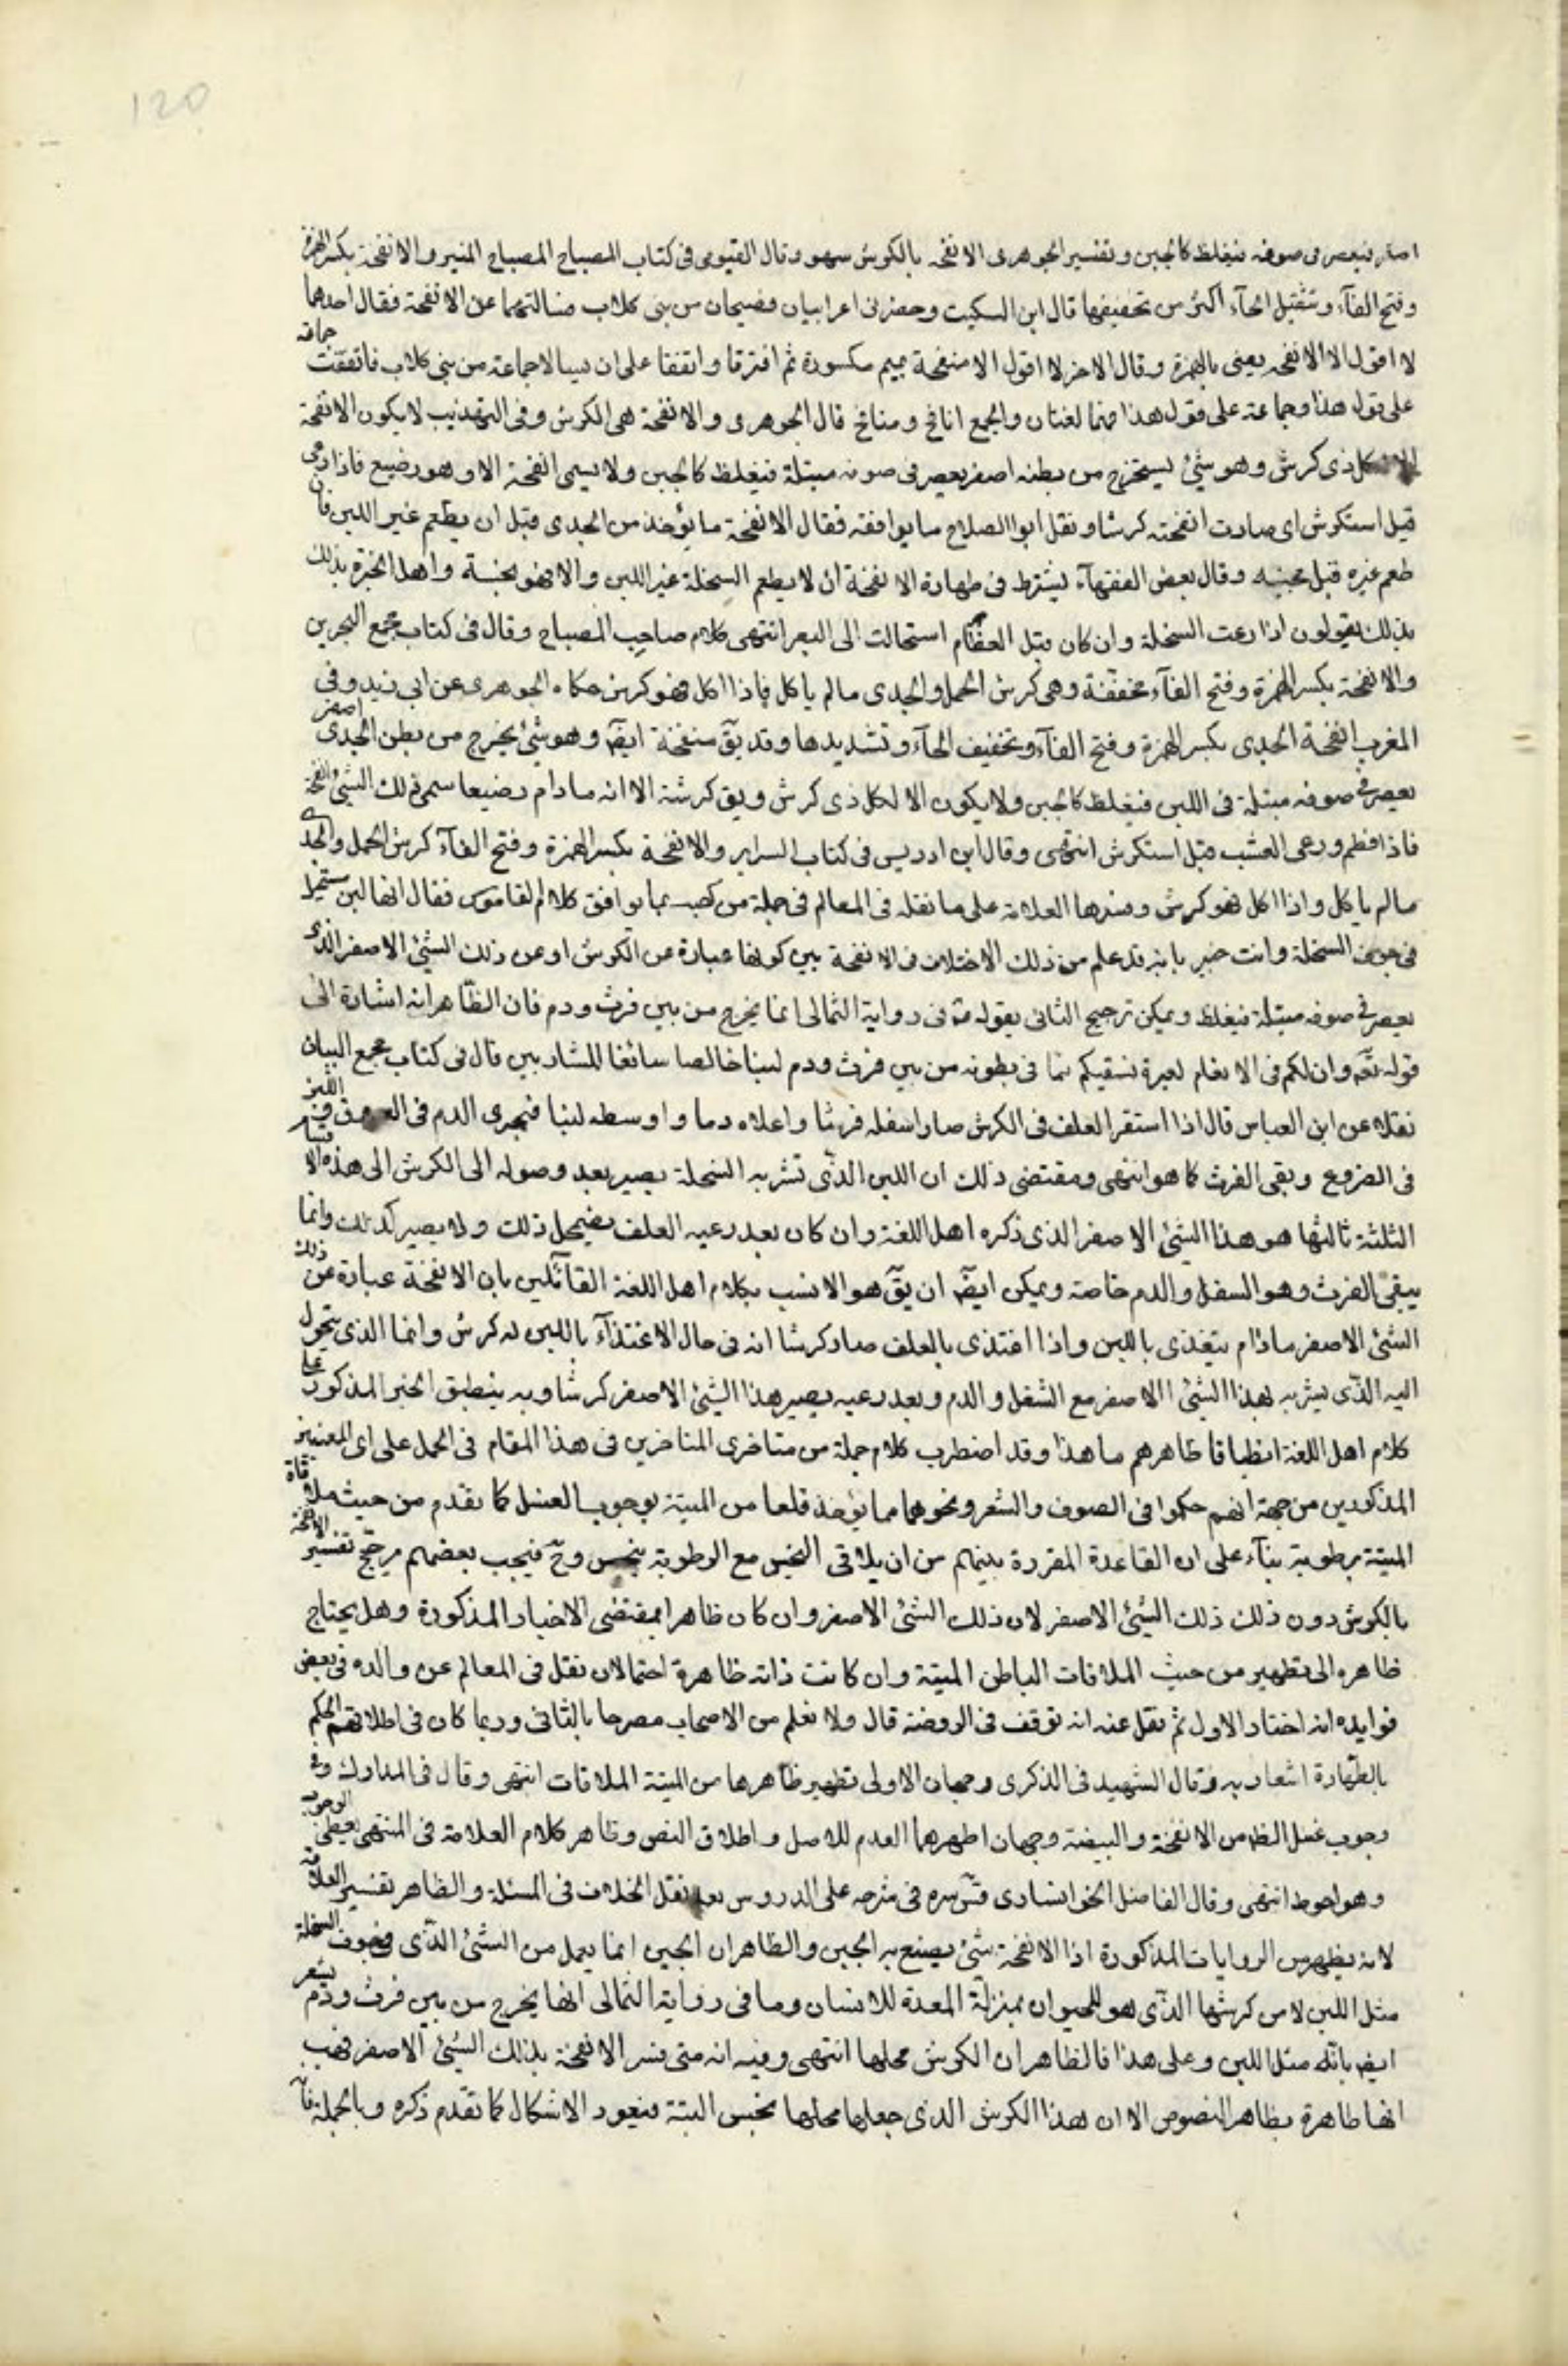 120
اصفر فيعصر فى صوفه فيغلظ كالجبن و تفسير الجوهرى الانفحه بالكرش سهو و قال الفيومى فى كتاب المصباح المصباح المنير و الانفحة بكسر الهمزة
و فتح الفآء و تثقيل الحآء اكثر من تخفيفها قال ابن السكيت و حضرنى اعرابيان فصيحان من بنى كلاب فسالتهما عن الانفحة فقال احدهما
لا اقول الا الانفحه يعنى بالهمزة و قال الاخر لا اقول الا منفحة بميم مكسورة ثم افترقا و اتفقا على ان يسالا جماعة من بنى كلاب فاتفقت جماعة
على قول هذا و جماعة على قول هذا فهما لغتان و الجمع انافح و منافح قال الجوهرى و الانفحة هى الكرش و فى التهذيب لا يكون الانفحة
الا لكل ذى كرش و هو شئ يستخرج من بطنه اصفر يعصر فى صوفه مبتلة فيغلظ كالجبن و لا يسمى انفحة الا و هو رضيع فاذا رعى
قيل استكرش اى صارت انفحته كرشا و نقل ابوا الصلاح ما يوافقه فقال الانفحة ما يؤخذ من الجدى قبل ان يطعم غير اللبن فان
طعم غيره قيل مجبنه و قال بعض الفقهآء يشترط فى طهارة الانفحة ان لا يطعم السخلة غير اللبن و الا فهو نجسة و اهل الخبرة بذلك
بذلك يقولون اذا رعت السخلة و ان كان قبل الفطام استحالت الى البعر انتهى كلام صاحب المصباح و قال فى كتاب مجمع البحرين
و الانفحة بكسر الهمزة و فتح الفآء مخففة و هى كرش الحمل و الجدى ما لم ياكل فاذا اكل فهو كرش حكاه الجوهرى عن ابى زيد و فى
المغرب انفحة الجدى بكسر الهمزة و فتح الفآء و تخفيف الحآء و تشديدها و قد يقٓ منفحة ايضٓ و هو شئ يخرج من بطن الجدى اصفر
يعصر فى صوفه مبتلة فى اللبن فيغلظ كالجبن و لا يكون الا لكل ذى كرش و يق كرشة الا انه ما دام رضيعا سمى ذلك الشئ انفحة
فاذا فطم و رعى العشب قيل استكرش انتهى و قال ابن ادريس فى كتاب السراير و الانفحة بكسر الهمزة و فتح الفآء كرش الحمل و الجدى
ما لم ياكل و اذا اكل فهو كرش و فسرها العلامة على ما نقله فى المعالم فى جملة من كتبه بما يوافق كلام القاموس فقال انها لبن مستحيل
فى جوف السخلة و انت خبير بانه قد علم من ذلك الاختلاف فى الانفحة بين كونها عبارة عن الكرش او عن ذلك الشئ الاصفر الذى
يعصر فى صوفه مبتلة فيغلظ و يمكن ترجيح الثانى بقوله فى رواية الثمالى انما يخرج من بين فرث و دم فان الظاهر انه اشارة الى
قوله تعٓ و ان لكم فى الانعام لعبرة نسقيكم مما فى بطونه من بين فرث و دم لبنا خالصا سائغا للشاربين قال فى كتاب مجمع البيان
نقلا عن ابن العباس قال اذا استقر العلف فى الكرش صار اسفله فرثا و اعلاه دما و اوسطه لبنا فيجرى الدم فى العروق و اللبن
فى الضروع و يبقى الفرث كما هو انتهى و مقتضى ذلك ان اللبن الذى تشربه السخلة يصير بعد وصوله الى الكرش الى هذه الاقسام
الثلثة ثالثها هو هذا الشئ الاصفر الذى ذكره اهل اللغة و ان كان بعد رعيه العلف يضمحل ذلك و لا يصير كذلك و انما
يبقى الفرث و هو السفل و الدم خاصة و يمكن ايضٓ ان يقٓ هو الانسب بكلام اهل اللغة القآئلين بان الانفحة عبارة عن ذلك
الشئ الاصفر ماذام يتغذى باللبن و اذا اغتذى بالعلف صار كرشا انه فى حال الاغتذآء باللبن له كرش و انما الذى يتحول
اليه الذى يشربه هذا الشئ الاصفر مع الثفل و الدم و بعد رعيه يصير هذا الشئ الاصفر كرشا و به ينطبق الخبر المذكور على
كلام اهل اللغة انطباقا ظاهرهم ما هذا و قد اضطرب كلام جملة من متاخرى المتاخرين فى هذا المقام فى الحمل على اى المعنيين
المذكورين من جهة انهم حكموا فى الصوف و الشعر و نحوهما مما يؤخذ قلعا من الميتة بوجوب الغسل كما تقدم من حيث ملاقاة
الميتة برطوبة بناء على ان القاعدة المقررة بينهم من ان يلاقى النجس مع الرطوبة ينجس و حٓ فيجب بعضهم مرجح تفسير الانفحة
بالكرش دون ذلك ذلك الشئ الاصفر لان ذلك الشئ الاصفر و ان كان ظاهرا بمقتضى الاخبار المذكورة و هل يحتاج
ظاهره الى تطهير من حيث الملاقات الباطن الميتة و ان كانت ذاته ظاهرة احتمالان نقل فى المعالم عن والده فى بعض
فوايده انه اختار الاول ثم نقل عنه انه توقف فى الروضة قال و لا نعلم من الاصحاب مصرحا بالثانى و ربما كان فى اطلاقهم الحكم
بالطهارة اشعار به و قال الشهيد فى الذكرى و جهان الاولى تطهير ظاهرها من الميتة الملاقات انتهى و قال فى المدارك و فى
وجوب غسل الظٓ من الانفحة و البيضة وجهان اظهرهما العدم للاصل و اطلاق النص و ظاهر كلام العلامة فى المنتهى يعطى الوجوب
و هو احوط انتهى و قال الفاضل الخوانسارى قدس سره فى شرحه على الدروس بعد نقل الخلاف فى المسئلة و الظاهر تفسير العلامة
لانه يظهر من الروايات المذكورة اذا الانفحة شئ يصنع به الجبن و الظاهر ان الجبن انما يعمل من الشئ الذى فى جوف السخلة
مثل اللبن لا من كرشها الذى هو للحيوان بمنزلة المعدة للانسان و ما فى رواية الثمالى انها يخرج من بين فرث و دم يشعر
ايضٓ بانه مثل اللبن و على هذا فالظاهر ان الكرش محلها انتهى و فيه انه متى فسر الانفحة بذلك الشئ الاصفر فهب
انها طاهرة بظاهر النصوص الا ان هذا الكرش الذى جعلها محلها نجس البتة فيعود الاشكال كما تقدم ذكره و بالجملة فا